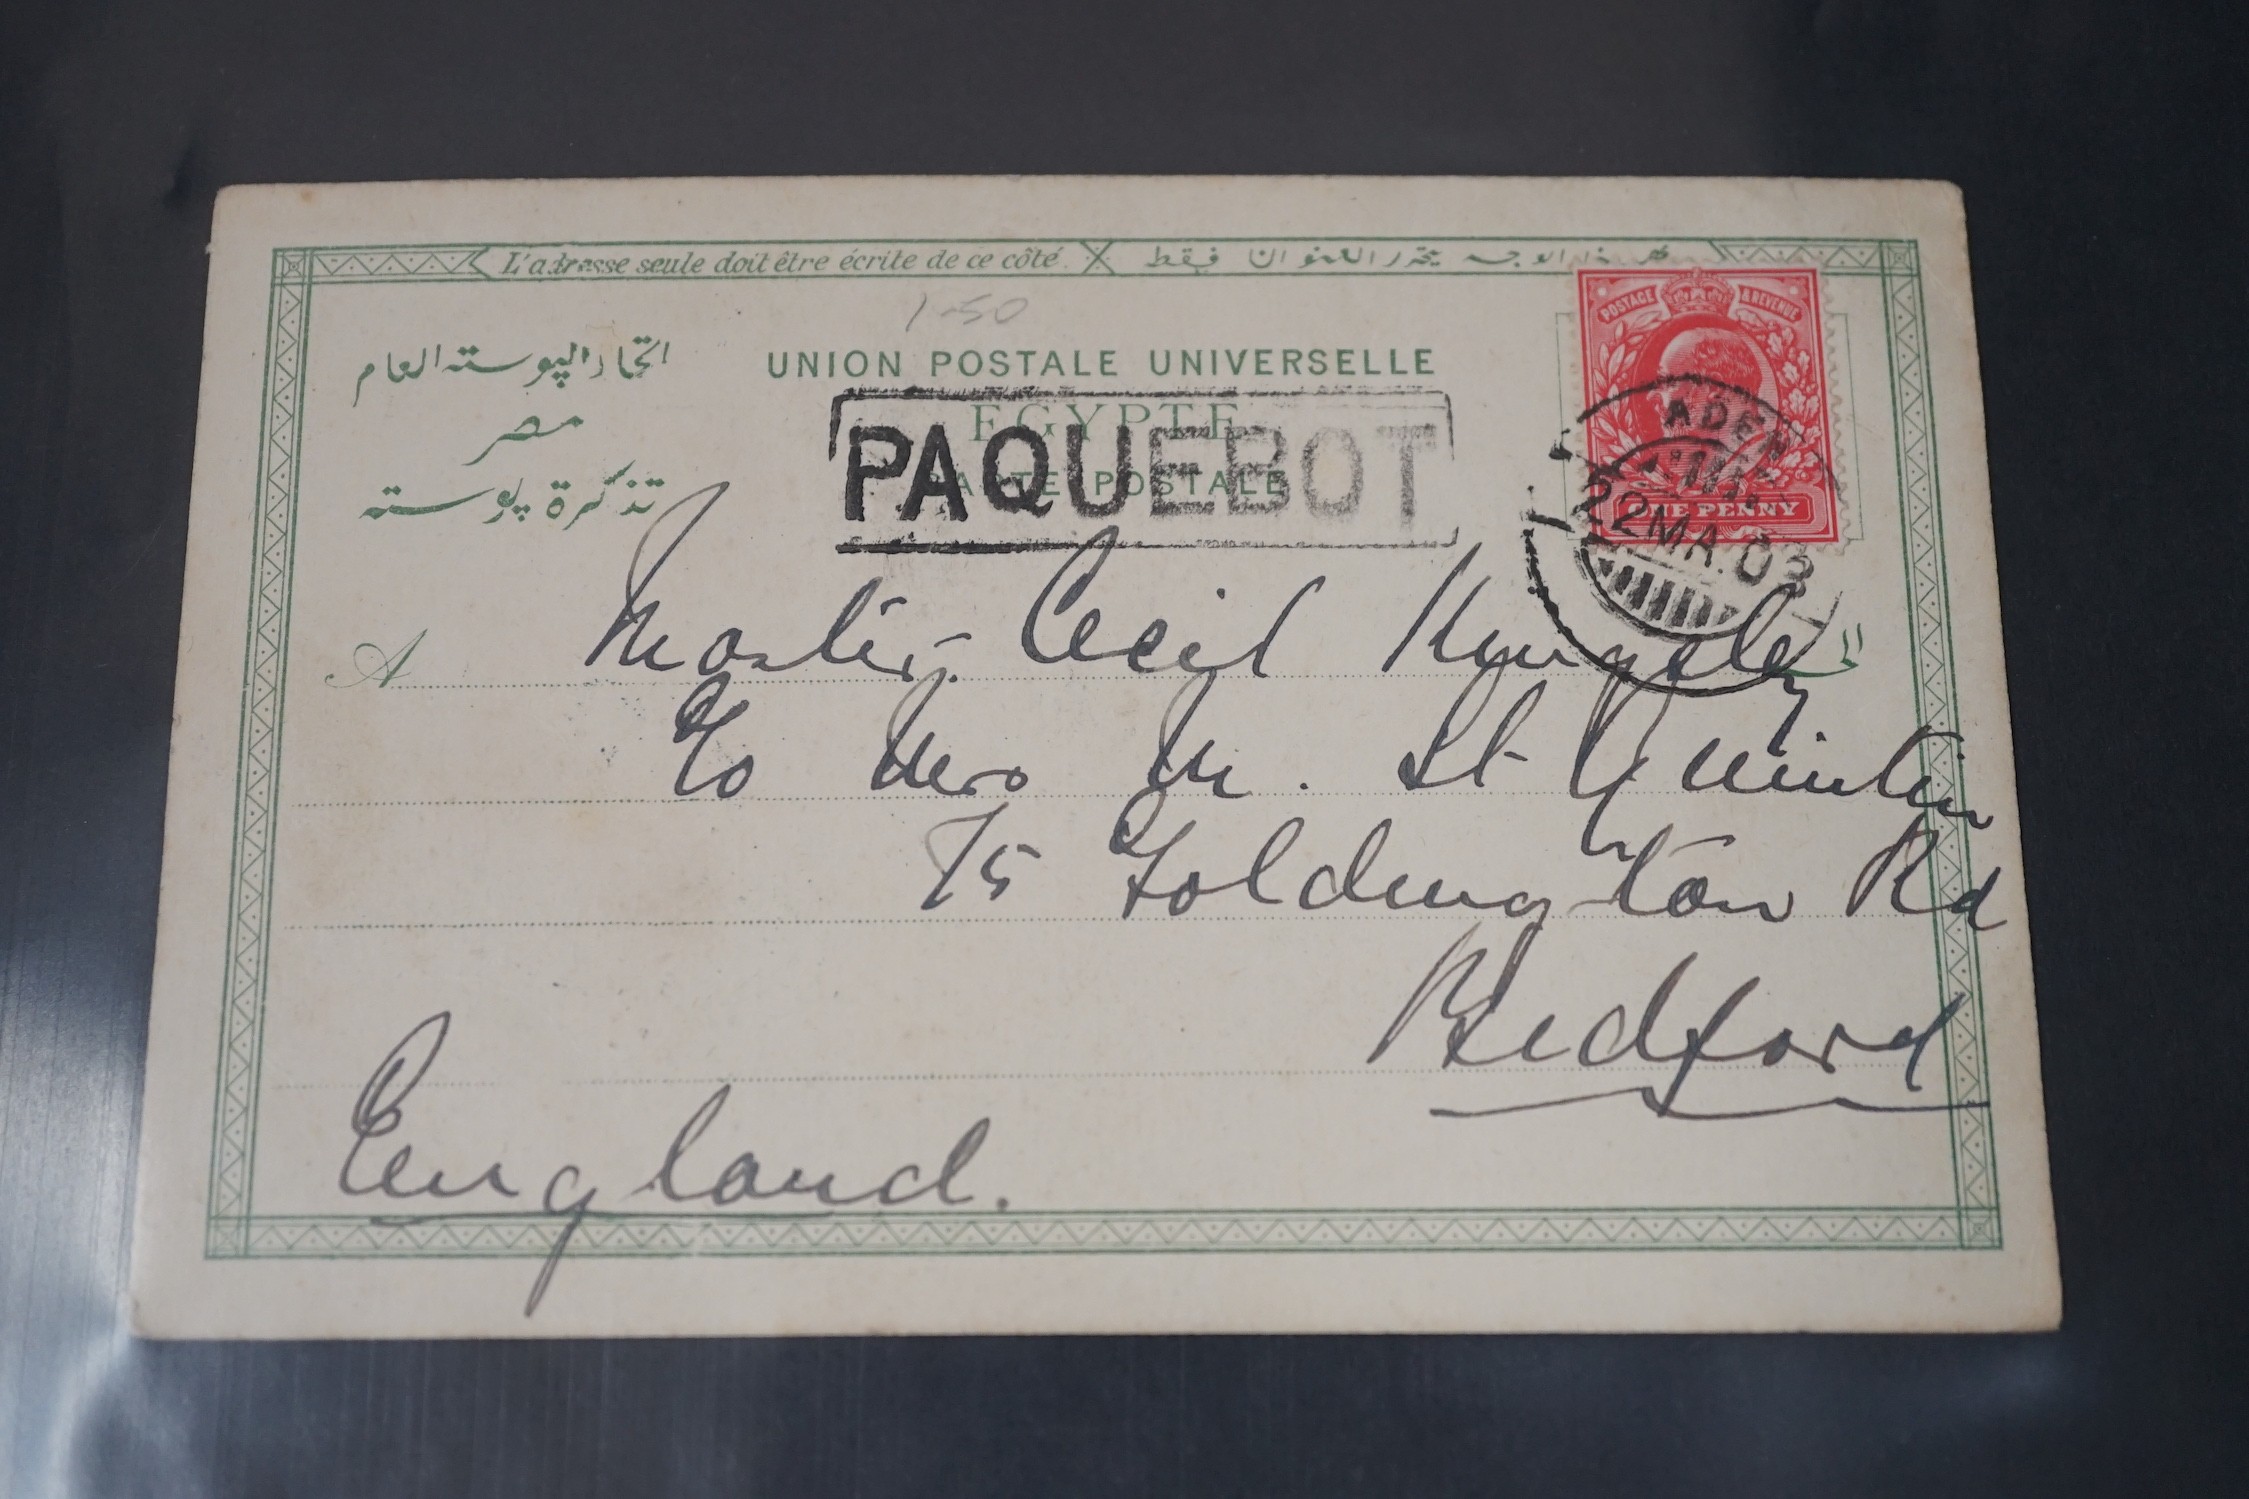 L'adresse seule doit être écrite de ce côté.
هذا الوجه يحرر العنوان فقط
1-50
اتحاد البوسته العام
مصر
تذكرة بوسته
UNION POSTALE UNIVERSELLE
EGYPTE
CARTE POSTALE
PAQUEBOT
POSTAGE & REVENUE
ONE PENNY
ADEN
22 MA. 03
A
Master Cecil
c/o Mrs M. St Quintin
75 Goldington Rd
Bedford
England.